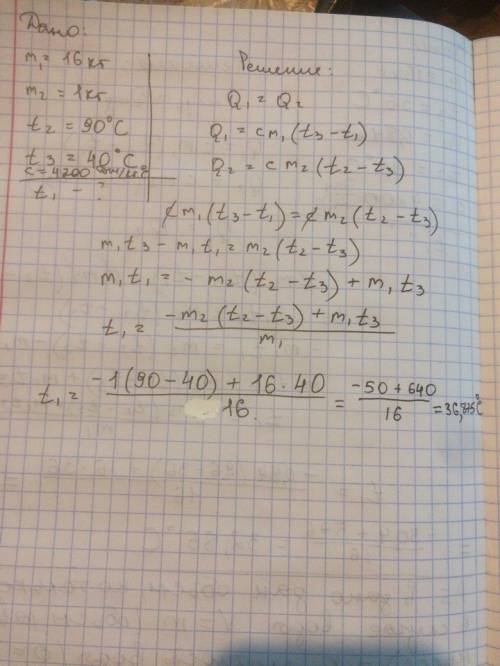 Дано:
m₁ = 16 кг
m₂ = 1 кг
t₂ = 90°C
t₃ = 40°C
c = 4200
t₁ - ?
Решение:
Q₁ = Q₂
Q₁ = cm₁(t₃ - t₁)
Q₂ = cm₂(t₂ - t₃)
cm₁(t₃ - t₁) = cm₂(t₂ - t₃)
m₁t₃ - m₁t₁ = m₂(t₂ - t₃)
m₁t₁ = - m₂(t₂ - t₃) + m₁t₃
t₁ = (-m₂(t₂ - t₃) + m₁t₃) / m₁
t₁ = (-1(90 - 40) + 16 · 40) / 16 = (-50 + 640) / 16 = 36,875°C